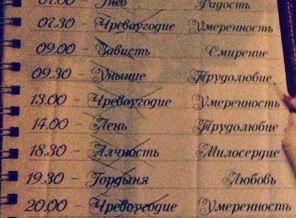 07.00 - Гнев Радость
07.30 - Чревоугодие Умеренность
09.00 - Зависть Смирение
09.30 - Уныние Трудолюбие
13.00 - Чревоугодие Умеренность
14.00 - Лень Трудолюбие
18.30 - Алчность Милосердие
19.30 - Гордыня Любовь
20.00 - Чревоугодие Умеренность